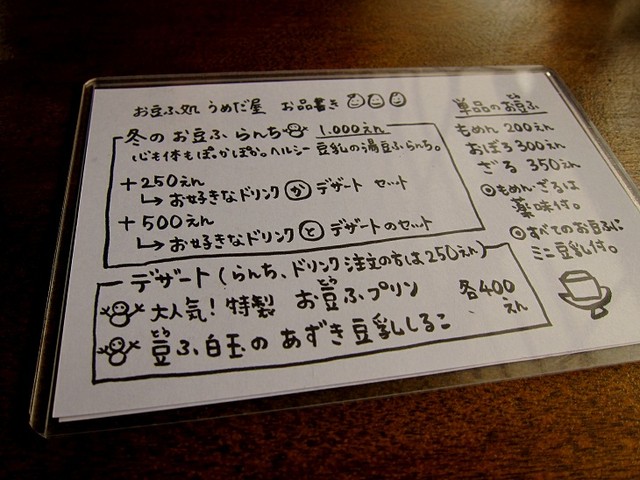 お豆ふ処 うめだ屋 お品書き
冬のお豆ふらんち 1.000えん
心も体もぽっかぽか。ヘルシー豆乳の湯豆ふらんち。
+250えん
↳お好きなドリンク か デザート セット
+500えん
↳お好きなドリンク と デザートのセット
デザート(らんち、ドリンク注文の方は250えん)
大人気!特製 お豆ふプリン
とう
豆ふ白玉の あずき豆乳しるこ
各400えん
単品のお豆ふ
もめん 200えん
おぼろ 300えん
ざる 350えん
◎もめん・ざるは
薬味付。
◎すべてのお豆ふに
ミニ豆乳付。